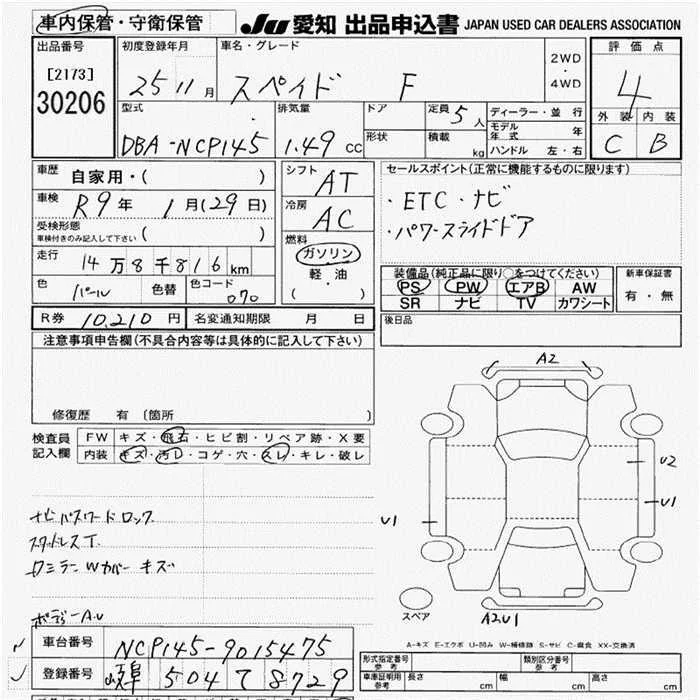 車内保管・守衛保管 JU 愛知 出品申込書 JAPAN USED CAR DEALERS ASSOCIATION
出品番号 初度登録年月 車名・グレード 評価点
[2173] 30206 25 11月 スペイド F 2WD・4WD 4
型式 排気量 ドア 定員 5人 ディーラー・並行 外装 内装
DBA-NCP145 1.49 CC 形状 積載 kg モデル年式 年 C B
ハンドル 左・右
車歴 自家用・( ) シフト AT セールスポイント(正常に機能するものに限ります)
車検 R9年 1月(29日) 冷房 AC ・ETC・ナビ
受検形態 車検付きのみ記入して下さい ( ) ・パワースライドドア
走行 14万8千816km 燃料 ガソリン 軽・油 ( )
装備品(純正品に限り○をつけてください) 新車保証書
色 パール 色替 色コード 070 PS PW エアB AW 有・無
SR ナビ TV カワシート
R券 10,210円 名変通知期限 月 日 後日品
注意事項申告欄(不具合内容等は具体的に記入して下さい)
A2
修復歴 有 〔箇所 〕
検査員記入欄 FW キズ・飛石・ヒビ割・リペア跡・X要
内装 キズ・汚レ・コゲ・穴・スレ・キレ・破レ
U2
U1
U1
ナビパスワードロック
スタッドレスT.
ロミラーWカバーキズ
ボデーA.U
スペア A2U1
A-キズ E-エクボ U-凹A W-補修跡 S-サビ C-腐食 XX-交換済
車台番号 NCP145-9015475
登録番号 岐阜 504 て 8729
形式指定番号 参考 類別区分番号 参考
車庫証明用 参考 長さ cm 幅 cm 高さ cm